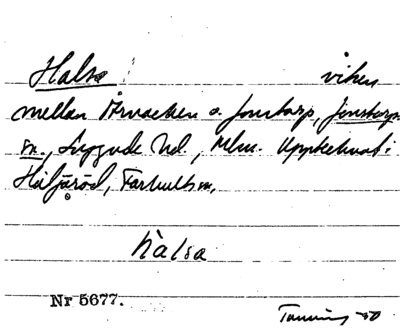 Halsa viken
mellan Årnacken o. Jonstorp, Jonstorps
sn., Luggude hd., Mlm. Upptecknat i
Häljaröd, Farhults sn.
halsa
Nr 5677.